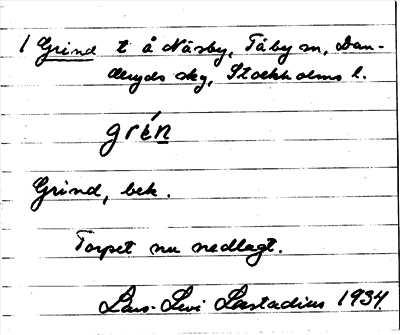 1 Grind t å Näsby, Täby sn, Dan-
deryds skg, Stockholms l.
grén
Grind, bek.
Torpet nu nedlagt.
Lars-Levi Læstadius 1934.